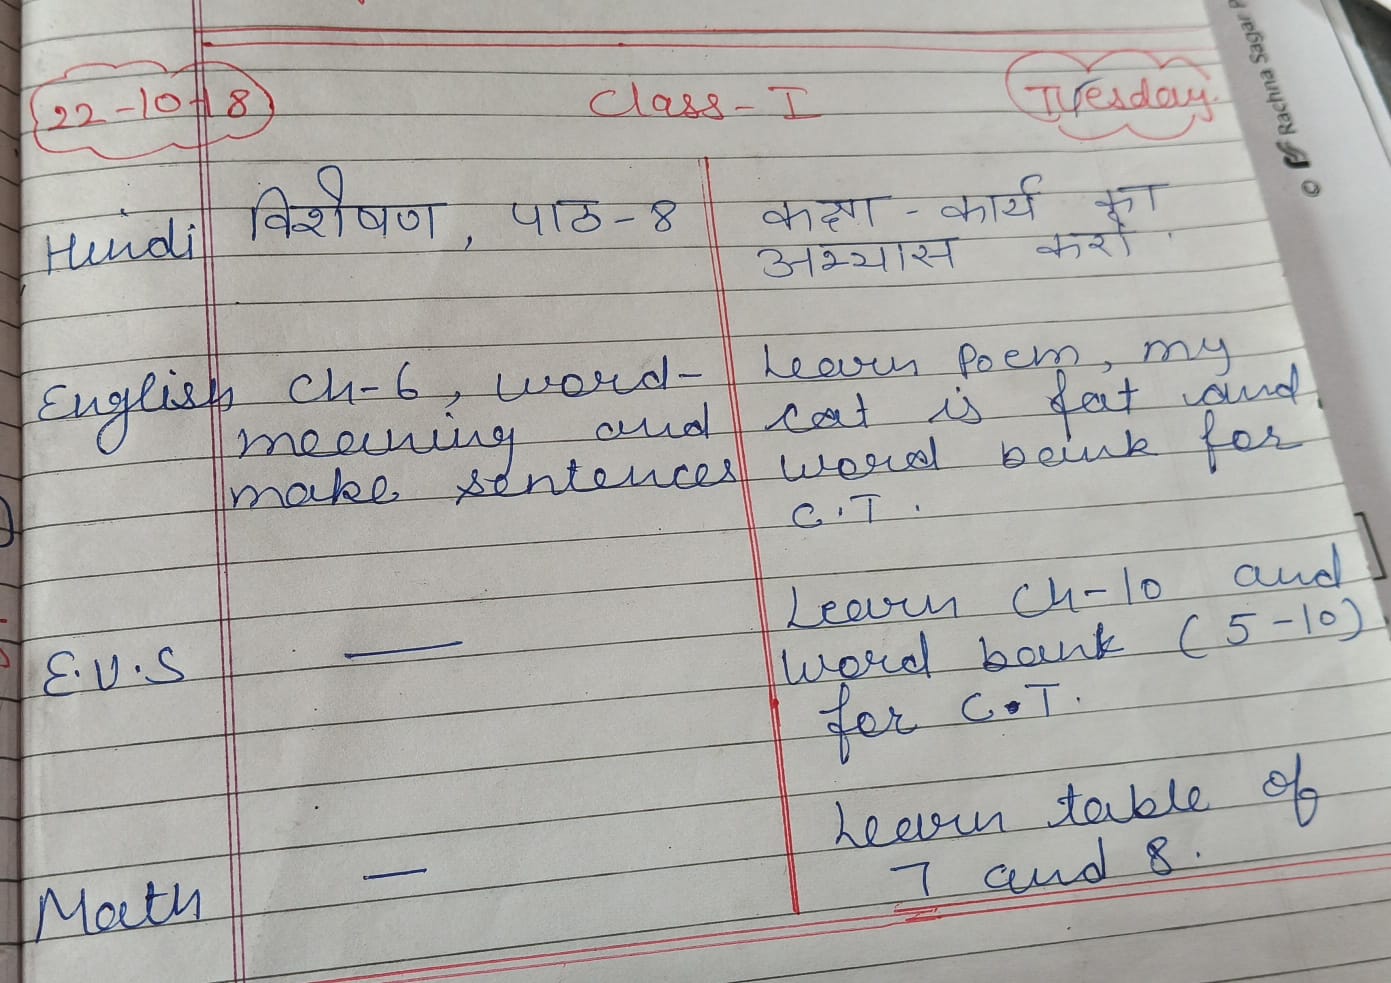 22-10-18 Class-I Tuesday
Hindi विशेषण, पाठ-8 कक्षा-कार्य का
अभ्यास करो.
English Ch-6, word- Learn Poem, my
meaning and cat is fat and
make sentences word bank for
C.T.
Learn Ch-10 and
E.V.S — word bank (5-10)
for C.T.
Learn table of
Math — 7 and 8.
© Rachna Sagar